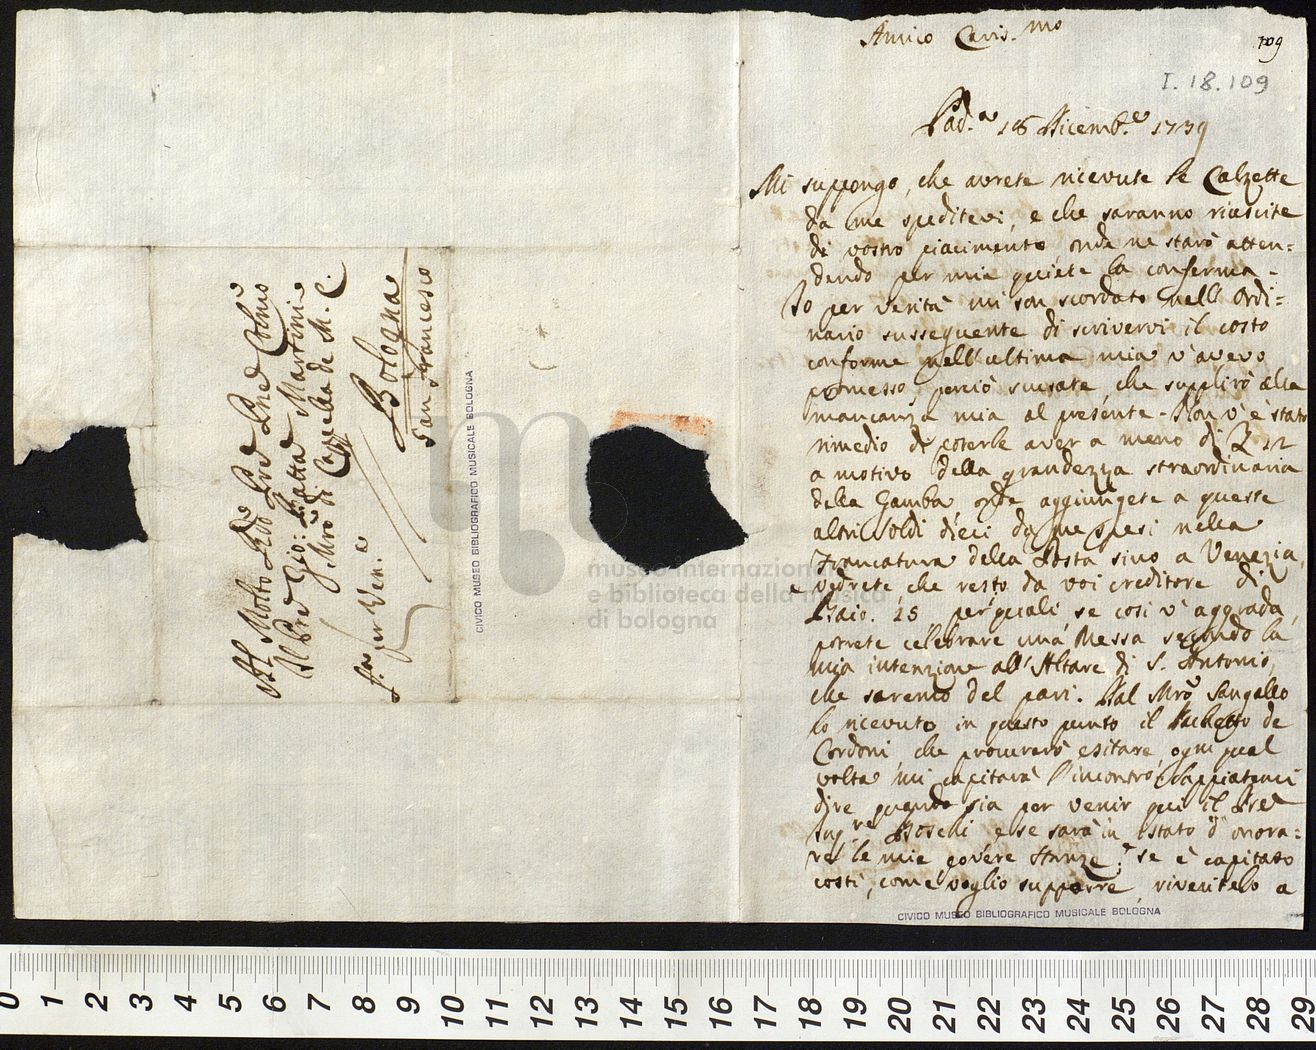 Amico Caris.mo
109
I.18.109
Pad.a 16 Dicemb.e 1739
Mi suppongo, che avrete ricevute le Calzette
da me speditevi, e che saranno riuscite
di vostro piacimento onde ne starò atten=
dendo per mia quiete la conferma.
Io per verità mi son scordato nell'Ordi=
nario susseguente di scrivervi il costo
conforme nell'ultima mia v'avevo
promesso, perciò scusate che supplirò alla
mancanza mia al presente. Non v'è stato
rimedio di poterle aver a meno di 12
a motivo della grandezza straordinaria
della Gamba, onde aggiungete a queste
altri Soldi dieci da me spesi nella
Francatura della Posta sino a Venezia,
e vedrete, che resto da voi creditore di
Baio. 25 per quali, se così v'aggrada,
potrete celebrare una Messa secondo la
mia intenzione all'Altare di S. Antonio,
che saremo del pari. Dal Mro Sangallo
ho ricevuto in questo punto il Pachetto de
Cordoni che procurarò esitare ogni qual
volta mi capitarà l'incontro. Sappiatemi
dire quando sia per venir qui il Pre
Boschi e se sarà in stato d'onora=
re le mie povere Stanze; se è capitato
costì, come voglio supporre, riveritelo a
CIVICO MUSEO BIBLIOGRAFICO MUSICALE BOLOGNA
Al Molto Rdo Pre Pne Colmo
Il Pre Gio: Batta Martini
Mro di Capella de M. C.
Bologna
San Francesco
p. Ven.a
CIVICO MUSEO BIBLIOGRAFICO MUSICALE BOLOGNA
museo internazionale
e biblioteca della musica
di bologna
0 1 2 3 4 5 6 7 8 9 10 11 12 13 14 15 16 17 18 19 20 21 22 23 24 25 26 27 28 29